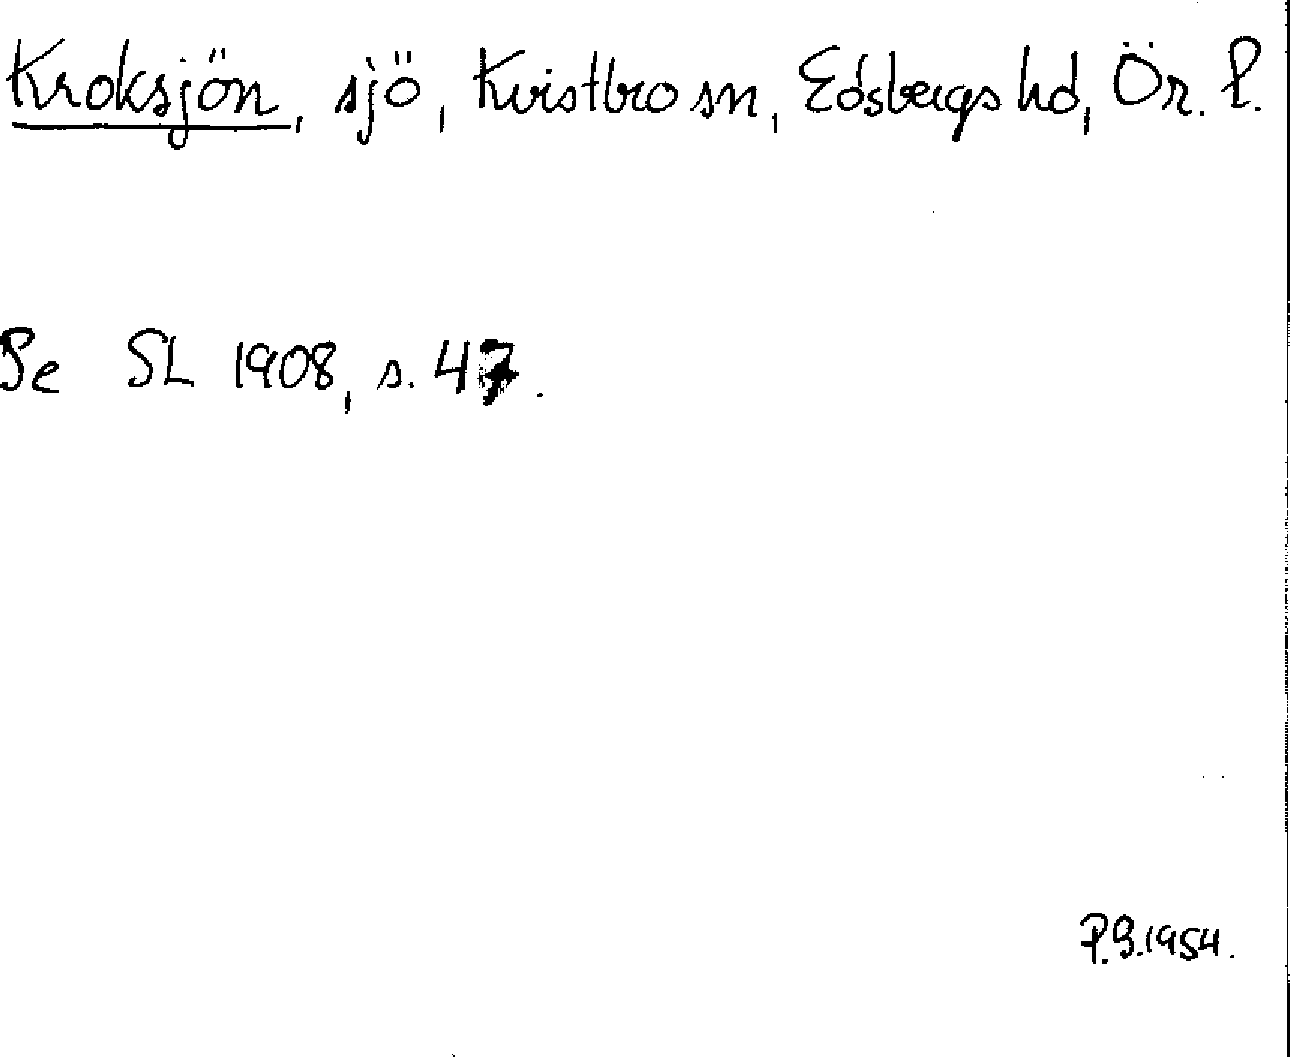 Kroksjön, sjö, Kvistbro sn, Edsbergs hd, Ör. l.
Se SL 1908, s. 47.
P.G.1954.